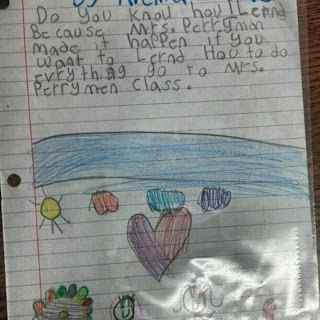 Do you know how I Lernd
Because Mrs. Perryman
made it happen if you
want to Lernd How to do
Evrything go to Mrs.
Perrymen class.